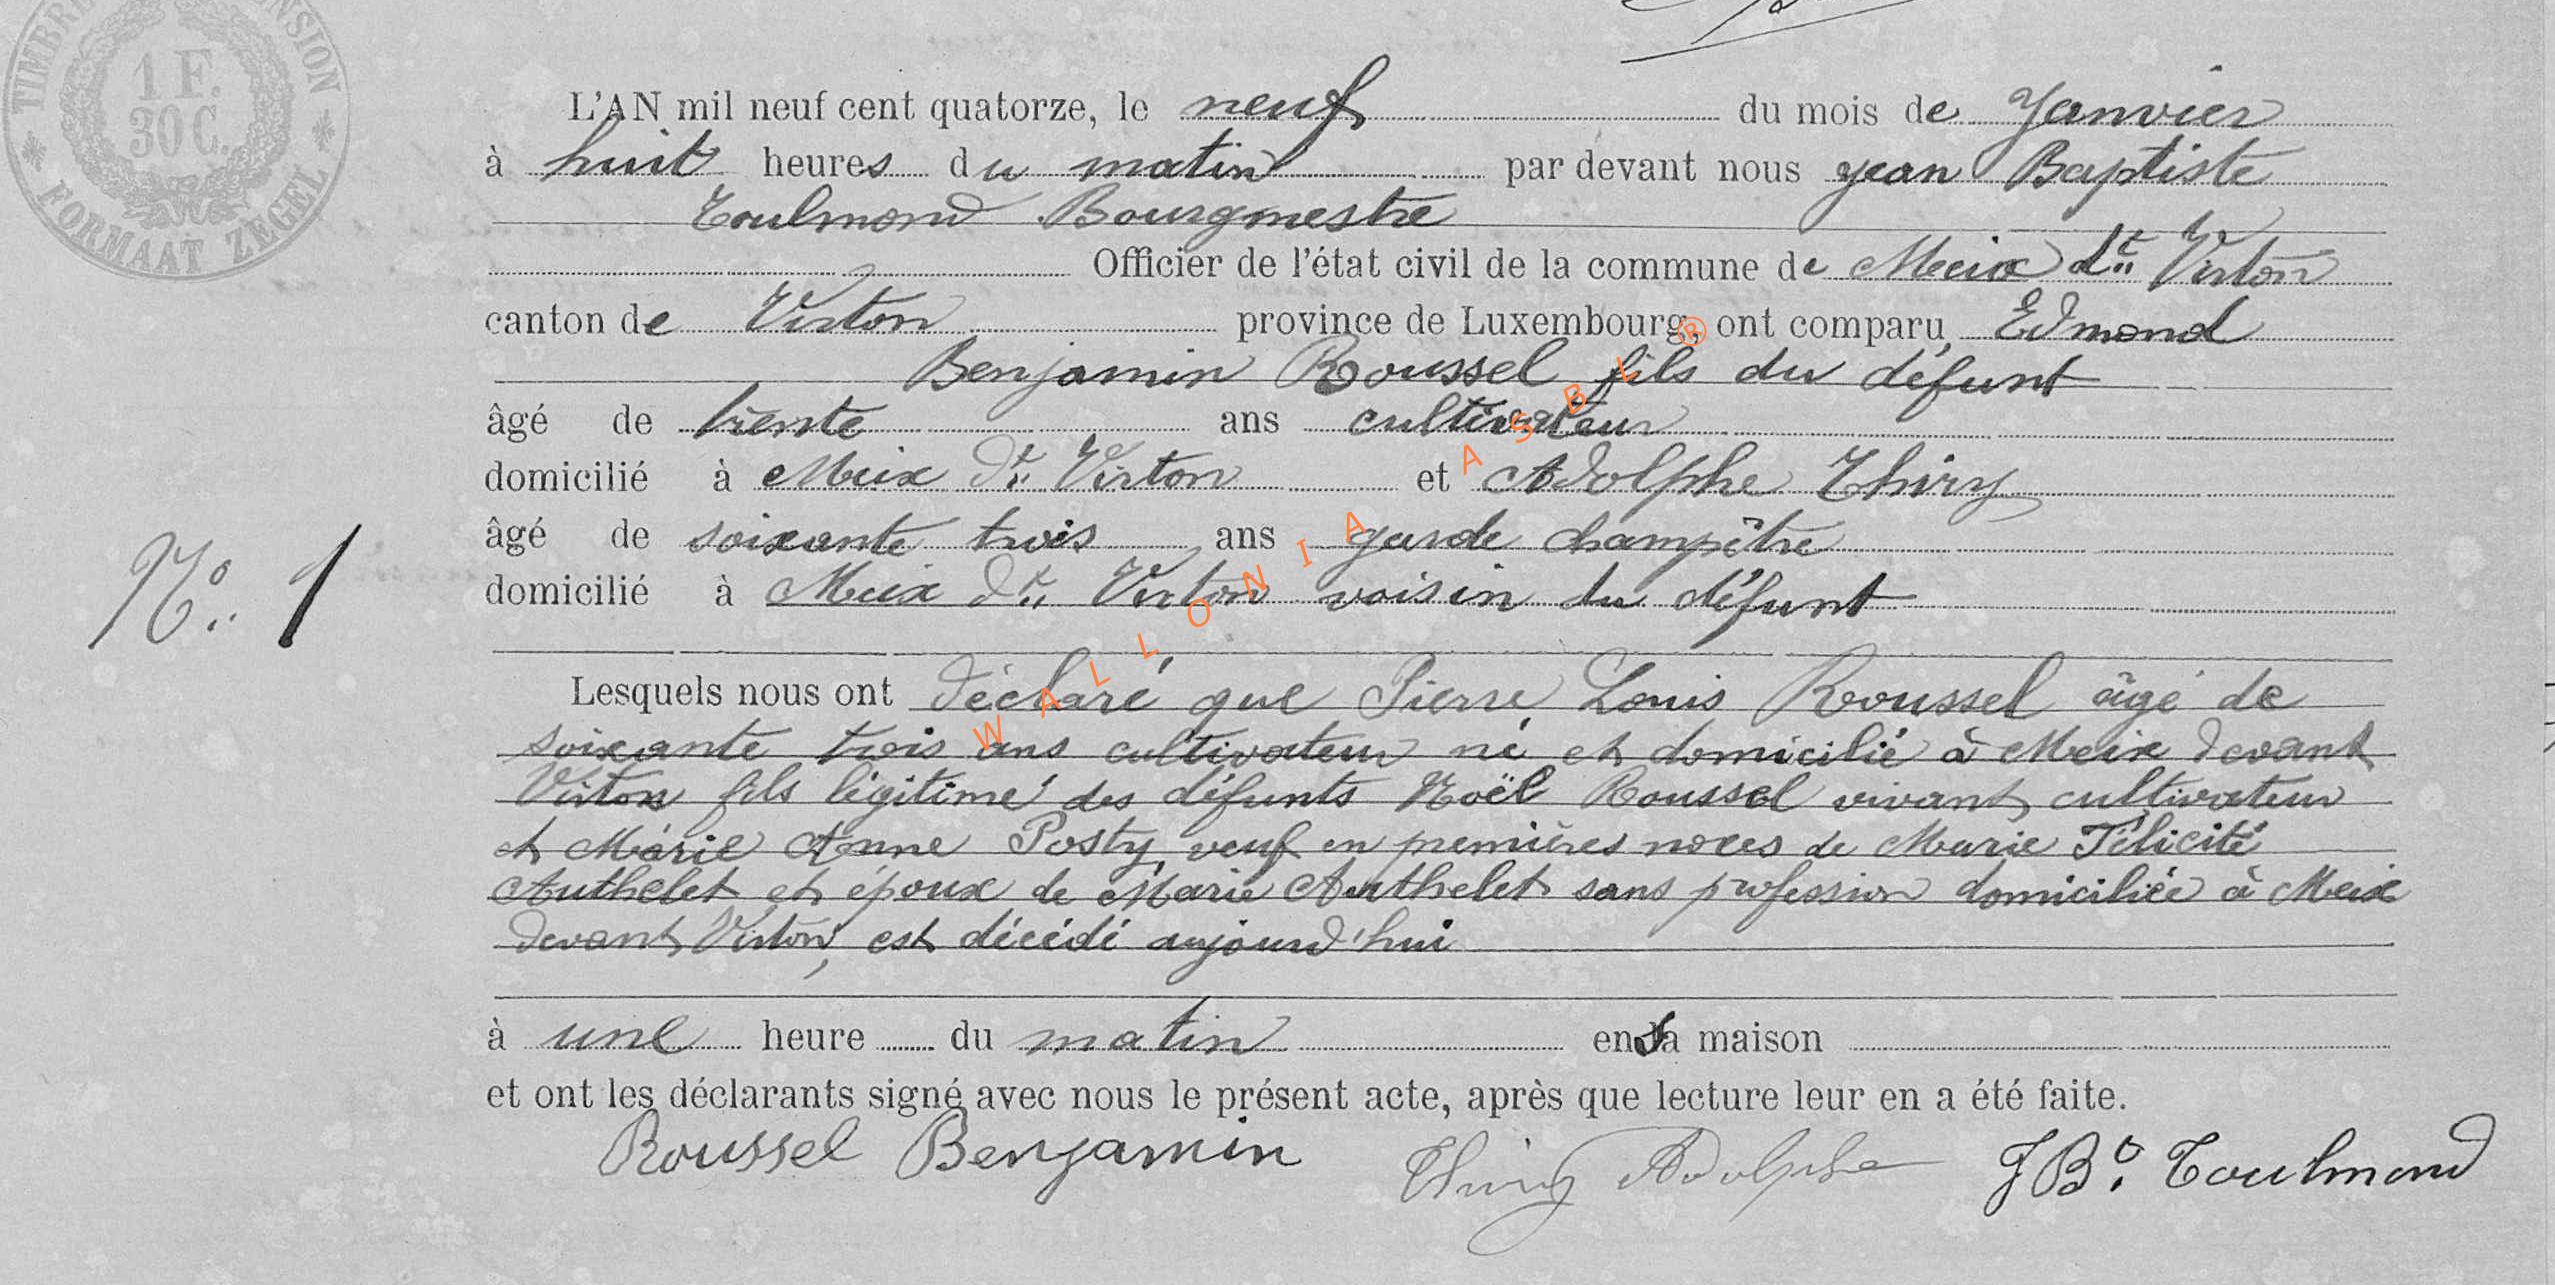 TIMBRE DIMENSION
1 F.
30 C.
FORMAAT ZEGEL
L'AN mil neuf cent quatorze, le neuf du mois de Janvier
à huit heures du matin par devant nous Jean Baptiste
Toulmond Bourgmestre
Officier de l'état civil de la commune de Meix dt Virton
canton de Virton province de Luxembourg, ont comparu, Edmond
Benjamin Roussel fils du défunt
âgé de trente ans cultivateur
domicilié à Meix dt Virton et Adolphe Thiry
âgé de soixante trois ans garde champêtre
domicilié à Meix dt Virton voisin du défunt
No. 1
Lesquels nous ont déclaré que Pierre Louis Roussel âgé de
soixante trois ans cultivateur né et domicilié à Meix devant
Virton fils légitime des défunts Noël Roussel vivant cultivateur
et Marie Anne Posty, veuf en premières noces de Marie Félicité
Authelet et époux de Marie Authelet sans profession domiciliée à Meix
devant Virton, est décédé aujourd'hui
à une heure du matin en sa maison
et ont les déclarants signé avec nous le présent acte, après que lecture leur en a été faite.
Roussel Benjamin Thiry Adolphe J Bte Toulmond
WALLONIA ASBL ®